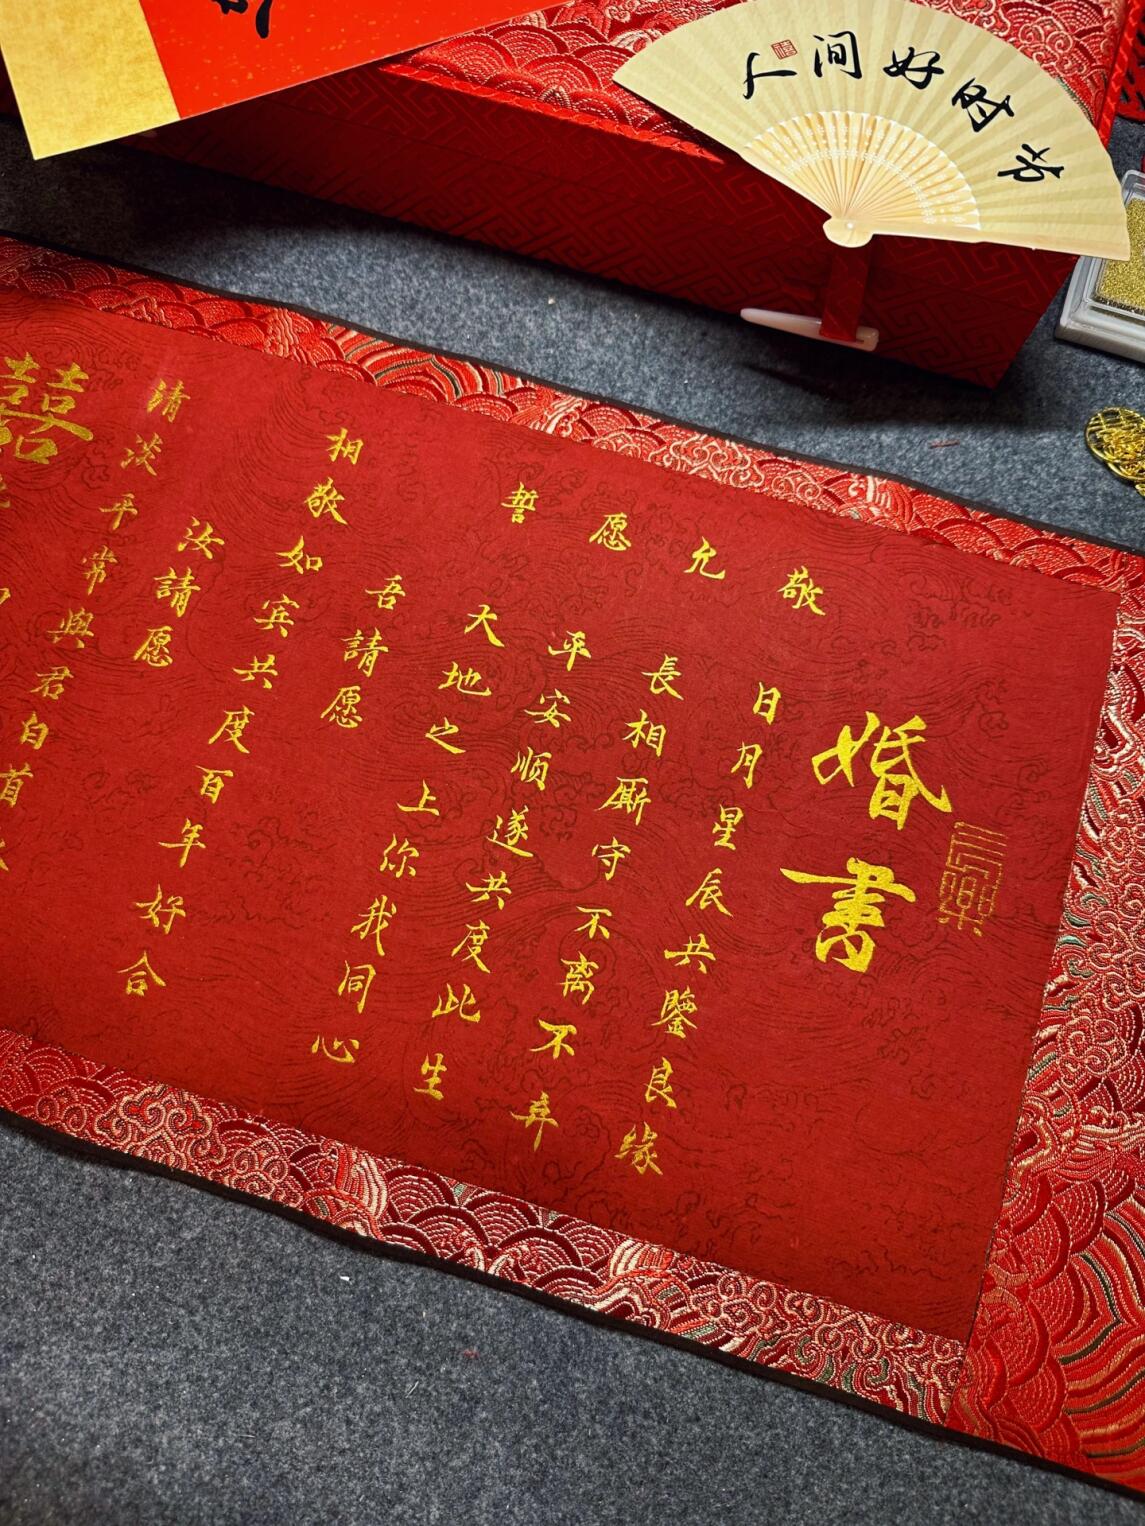 人间好时节
婚書
敬日月星辰共鑒良缘
允長相厮守不离不弃
愿平安顺遂共度此生
誓大地之上你我同心
吾請愿
相敬如宾共度百年好合
汝請愿
清淡平常與君白首
囍